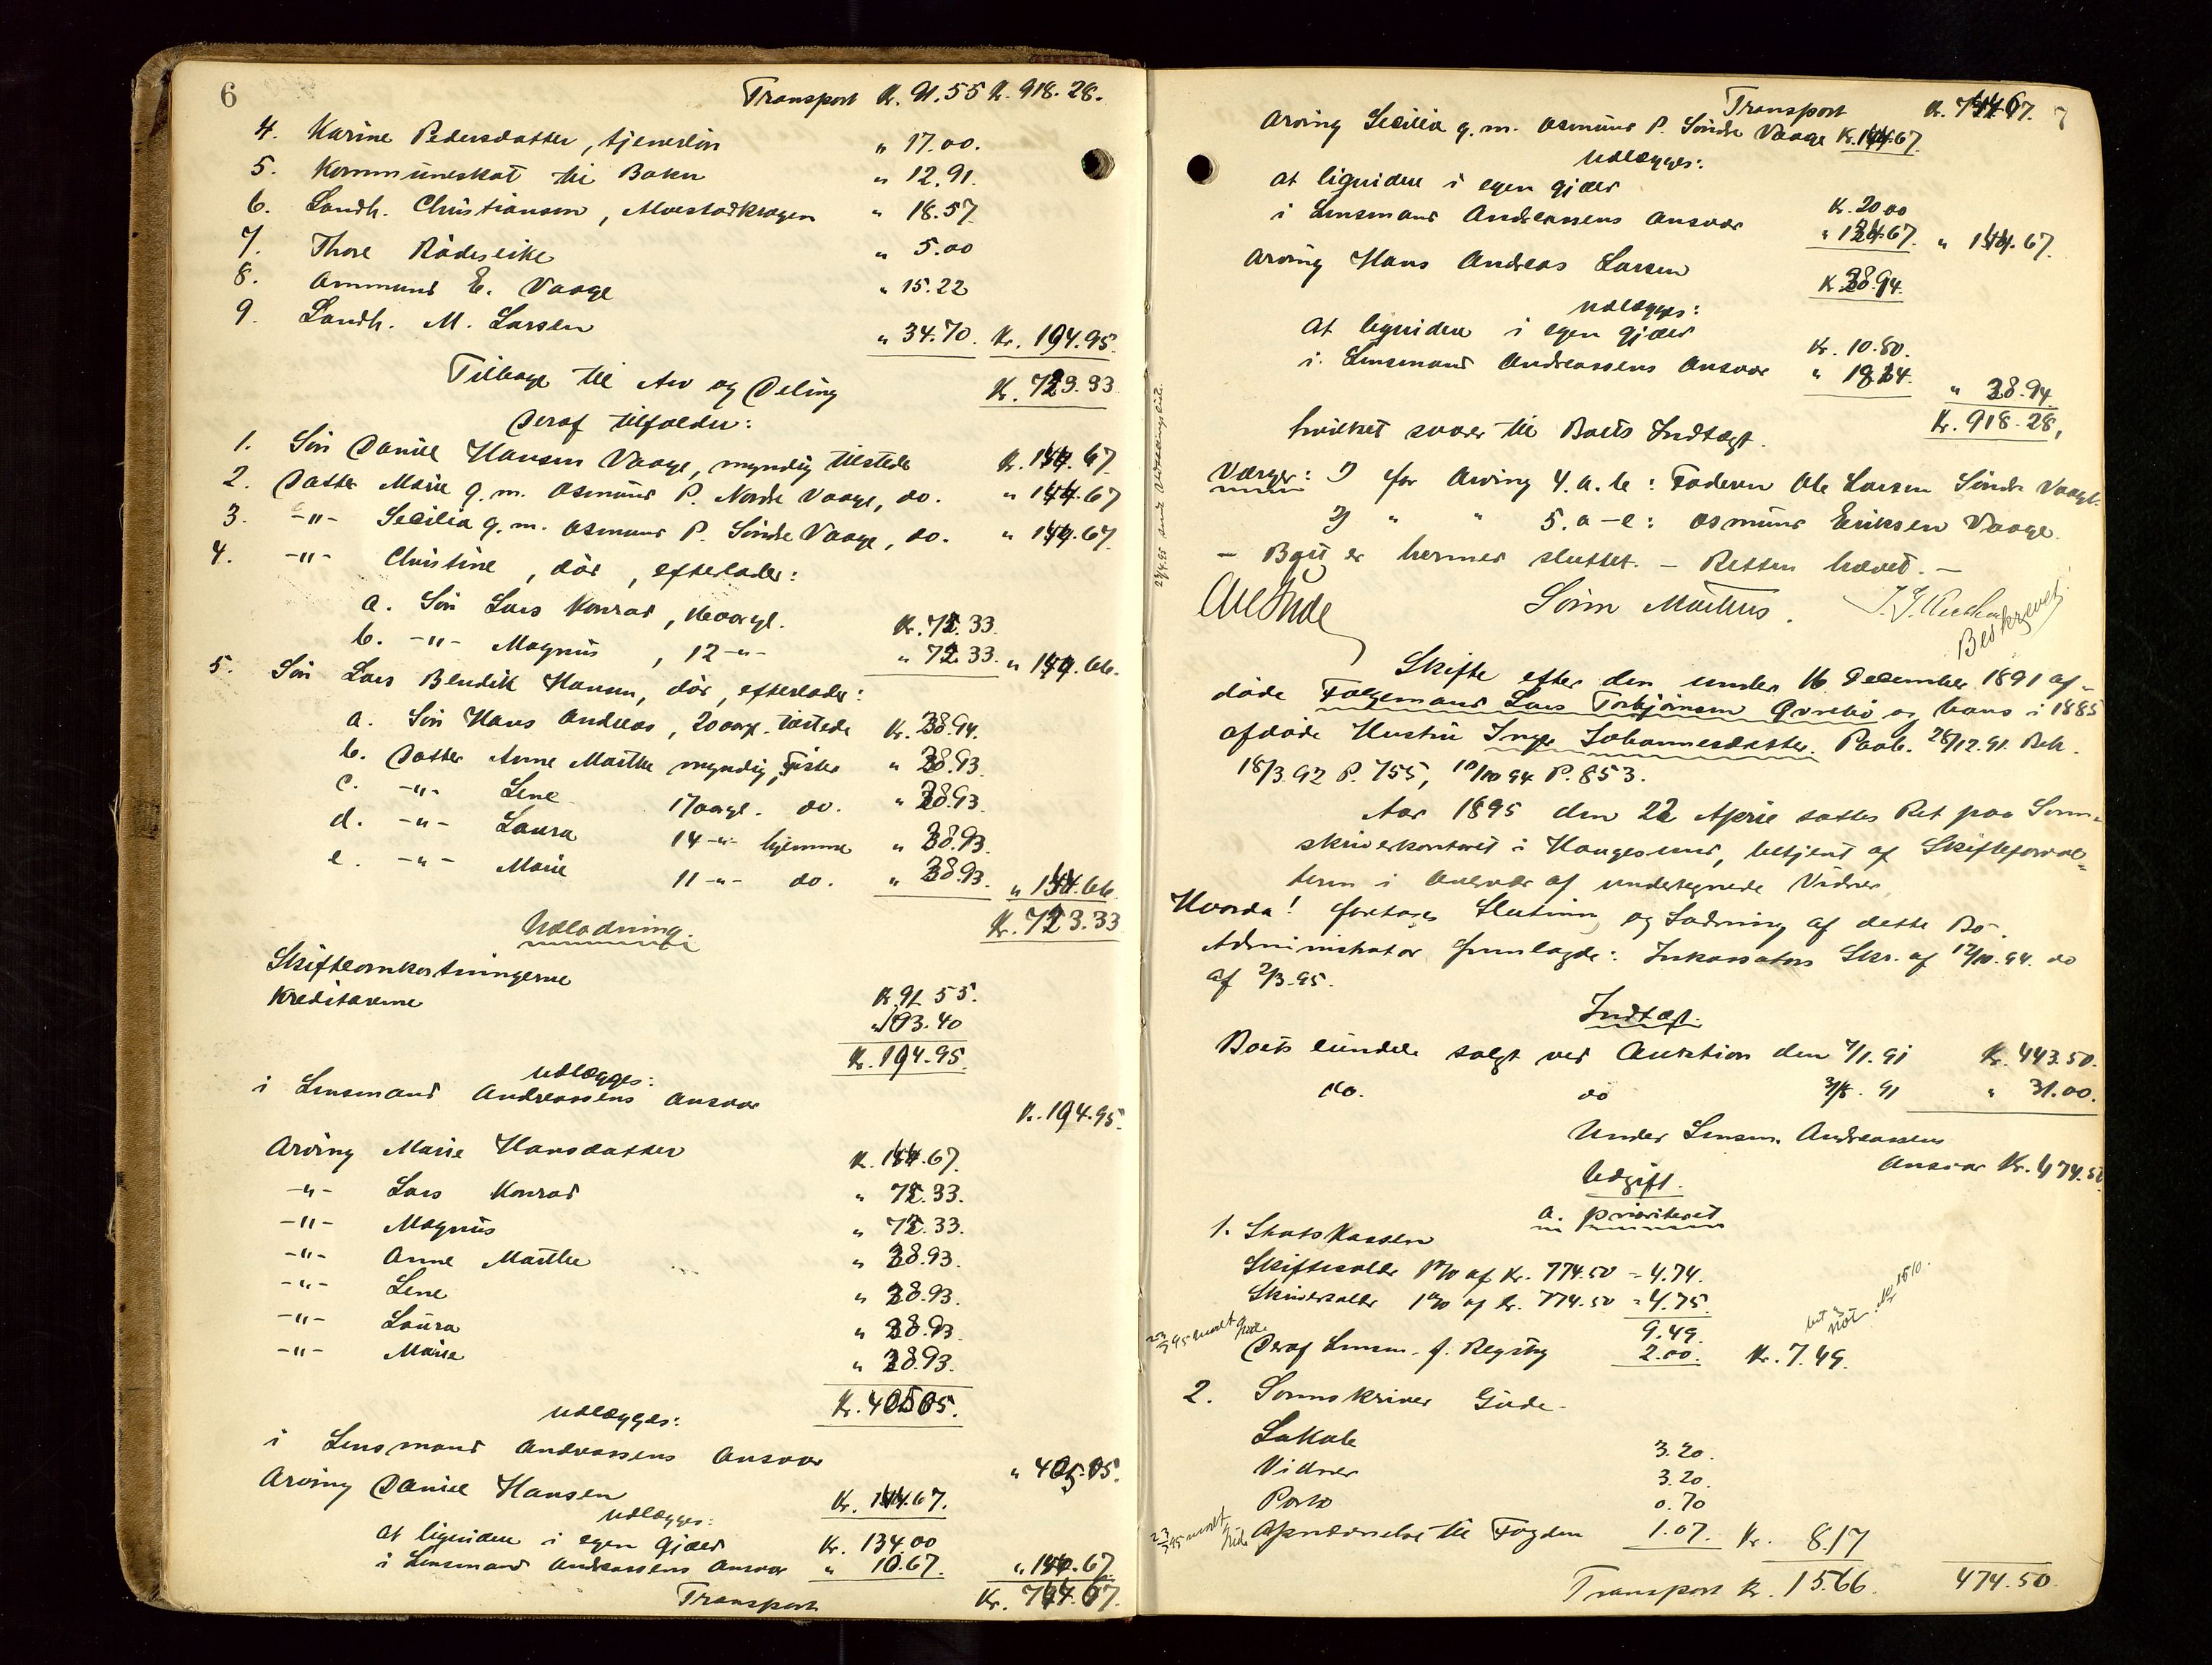 6
Transport Kr. 91.55 Kr. 918.28.
4. Karine Pedersdatter, tjenerlön " 17.00.
5. Kommuneskat til Bokn " 12.91.
6. Landh. Christiansen, " 18.57
7. Thore " 5.00
8. Ammund E. Vaage " 15.22
9. Landh. M. Larsen " 34.70. Kr. 194.95.
Tilbage til Arv og Deling Kr. 723.33
Deraf tilfalder:
1. Sön Daniel Hansen Vaage, myndig tilstede Kr. 144.67
2. Datter Marie g. m. Osmund P. Nordre Vaage, do. " 144.67
3. -"- Secilia g. m. Osmund P. Söndre Vaage, do. " 144.67
4. -"- Christine, död, efterlader:
a. Sön Lars Konrad, aargl. Kr. 72.33.
b. -"- Magnus, 12 -"- " 72.33. " 144.66.
5. Sön Lars Bendik Hansen, död, efterlader:
a. Sön Hans Andreas, 20 aarg. tilstede Kr. 28.94.
b. Datter Anne Marthe myndig, " 28.93.
c. -"- Lene 17 aargl. do. " 28.93.
d. -"- Laura 14 -"- hjemme " 28.93.
e. -"- Marie 11 -"- do. " 28.93. " 144.66
Kr. 723.33
Udlodning.
Skifteomkostningerne Kr. 91.55.
Kreditorerne " 103.40
Kr. 194.95.
udlægges:
i Lensmand Andreassens Ansvar Kr. 194.95.
Arving Marie Hansdatter Kr. 144.67.
-"- Lars Konrad " 72.33.
-"- Magnus " 72.33.
-"- Anne Marthe " 28.93.
-"- Lene " 28.93.
-"- Laura " 28.93.
-"- Marie " 28.93.
Kr. 405.05.
udlægges:
i Lensmand Andreassens Ansvar " 405.05.
Arving Daniel Hansen Kr. 144.67.
udlægges:
at liquidere i egen Gjæld Kr. 134.00
i Lensmand Andreassens Ansvar " 10.67. " 144.67
Transport Kr. 744.67.
7
Transport Kr. 744.67.
Arving Secilia g. m. Osmund P. Söndre Vaage Kr. 144.67
udlægges:
at liquidere i egen Gjæld Kr. 20.00
i Lensmand Andreassens Ansvar " 124.67. " 144.67.
Arving Hans Andreas Larsen Kr. 28.94.
udlægges:
at liquidere i egen Gjæld Kr. 10.80.
i Lensmand Andreassens Ansvar " 18.14. " 28.94.
Kr. 918.28,
hvilket svarer til Boets Indtægt.
Værger: 1) for Arving 4. a. b: Faderen Ole Larsen Söndre Vaage.
2) " " 5. a-e: Osmund Eriksen Vaage.
- Boet er hermed sluttet. - Retten hævet. -
Sören Mathus.
Beskrevet.
Skifte efter den under 16 December 1891 af-
døde Folgemand Lars Torbjörnsen Qvrebö og hans i 1885
afdøde Hustru Inger Johannesdatter. Paab. 28/12.91. Beh.
18/3.92 P. 755, 10/10 94 P. 853.
Aar 1895 den 22 April sattes Ret paa Soren-
skriverkontoret i Haugesund, betjent af Skifteforval-
teren i Overvær af undertegnede Vidner,
Hvorda! foretoges Slutning og Lodning af dette Bo.
Administrator fremlagde: Inkassators Skr. af 12/10.94. do
af 2/3.95.
Indtægt.
Boets Eiendele solgt ved Auktion den 7/1.91 Kr. 443.50.
do. do 91 " 31.00.
Under Lensm. Andreassens
Ansvar Kr. 474.50
Udgift.
a. prioriteret
1. Statskassen
Skifteskatt 1% af Kr. 774.50 = 4.74.
1% af Kr. 774.50 = 4.75.
9.49.
Deraf Lensm. f. Regstrg 2.00. Kr. 7.49.
2. Sorenskriver Gude.
Lokale 3.20.
Vidner 3.20.
Porto 0.70
til Fogden 1.07. Kr. 8.17
Transport Kr. 15.66. 474.50